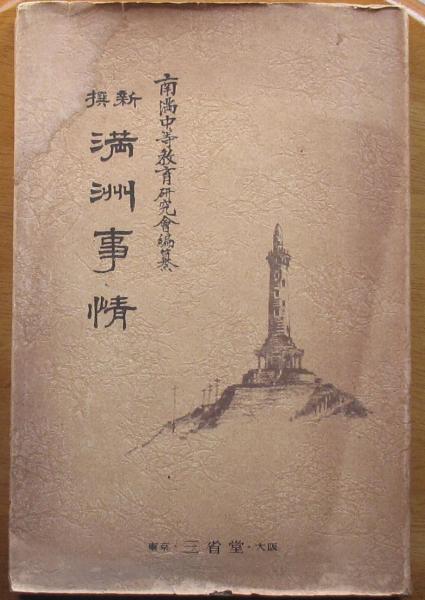 南満中等教育研究會編纂
新撰
満洲事情
東京・三省堂・大阪